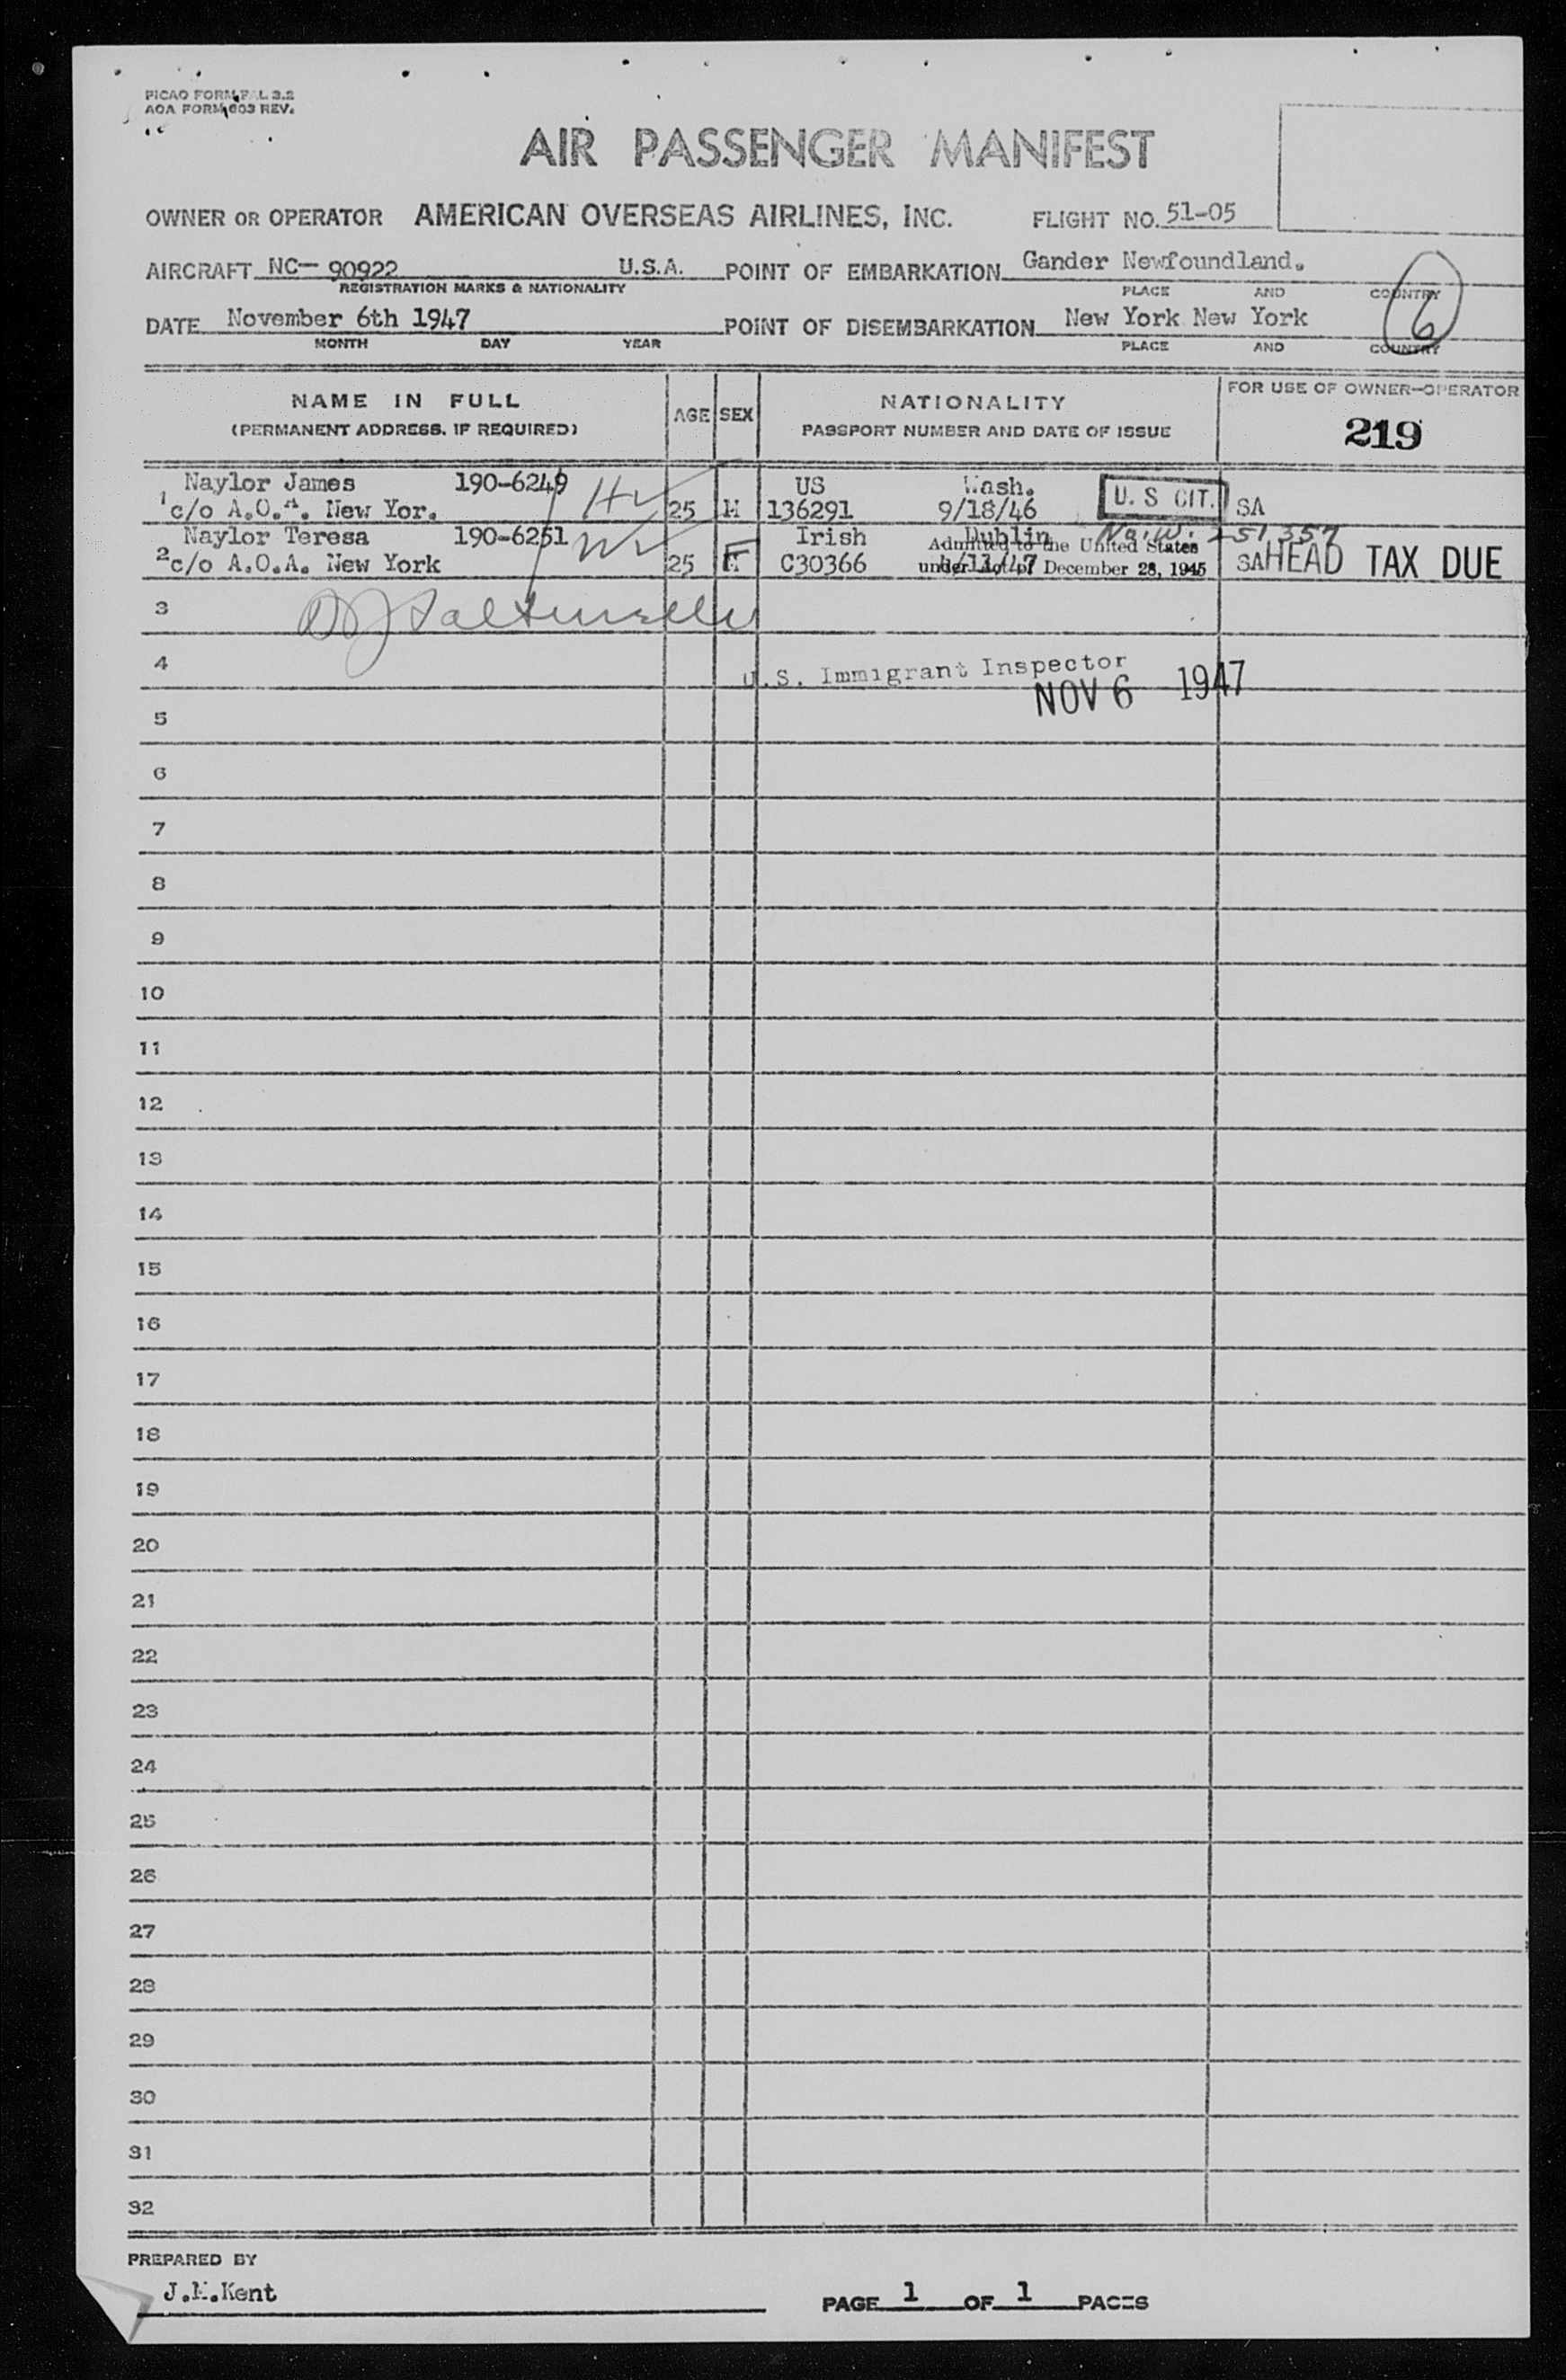 PICAO FORM FAL 3.2
AOA FORM 603 REV.
AIR PASSENGER MANIFEST
OWNER OR OPERATOR AMERICAN OVERSEAS AIRLINES, INC. FLIGHT NO. 51-05
AIRCRAFT NC- 90922 U.S.A. POINT OF EMBARKATION Gander Newfoundland.
REGISTRATION MARKS & NATIONALITY PLACE AND COUNTRY
6
DATE November 6th 1947 POINT OF DISEMBARKATION New York New York
MONTH DAY YEAR PLACE AND COUNTRY
NAME IN FULL AGE SEX NATIONALITY FOR USE OF OWNER-OPERATOR
(PERMANENT ADDRESS, IF REQUIRED) PASSPORT NUMBER AND DATE OF ISSUE 219
Naylor James 190-6249 H US Wash. U. S CIT.
1 c/o A.O.A. New Yor. 25 M 136291 9/18/46 SA
Naylor Teresa 190-6251 W Irish Dublin 251,357
Admitted to the United States
2 c/o A.O.A. New York 25 F C30366 under Act of December 28, 1945 SA HEAD TAX DUE
3
4 U.S. Immigrant Inspector
NOV 6 1947
5
6
7
8
9
10
11
12
13
14
15
16
17
18
19
20
21
22
23
24
25
26
27
28
29
30
31
32
PREPARED BY
J.M.Kent
PAGE 1 OF 1 PAGES